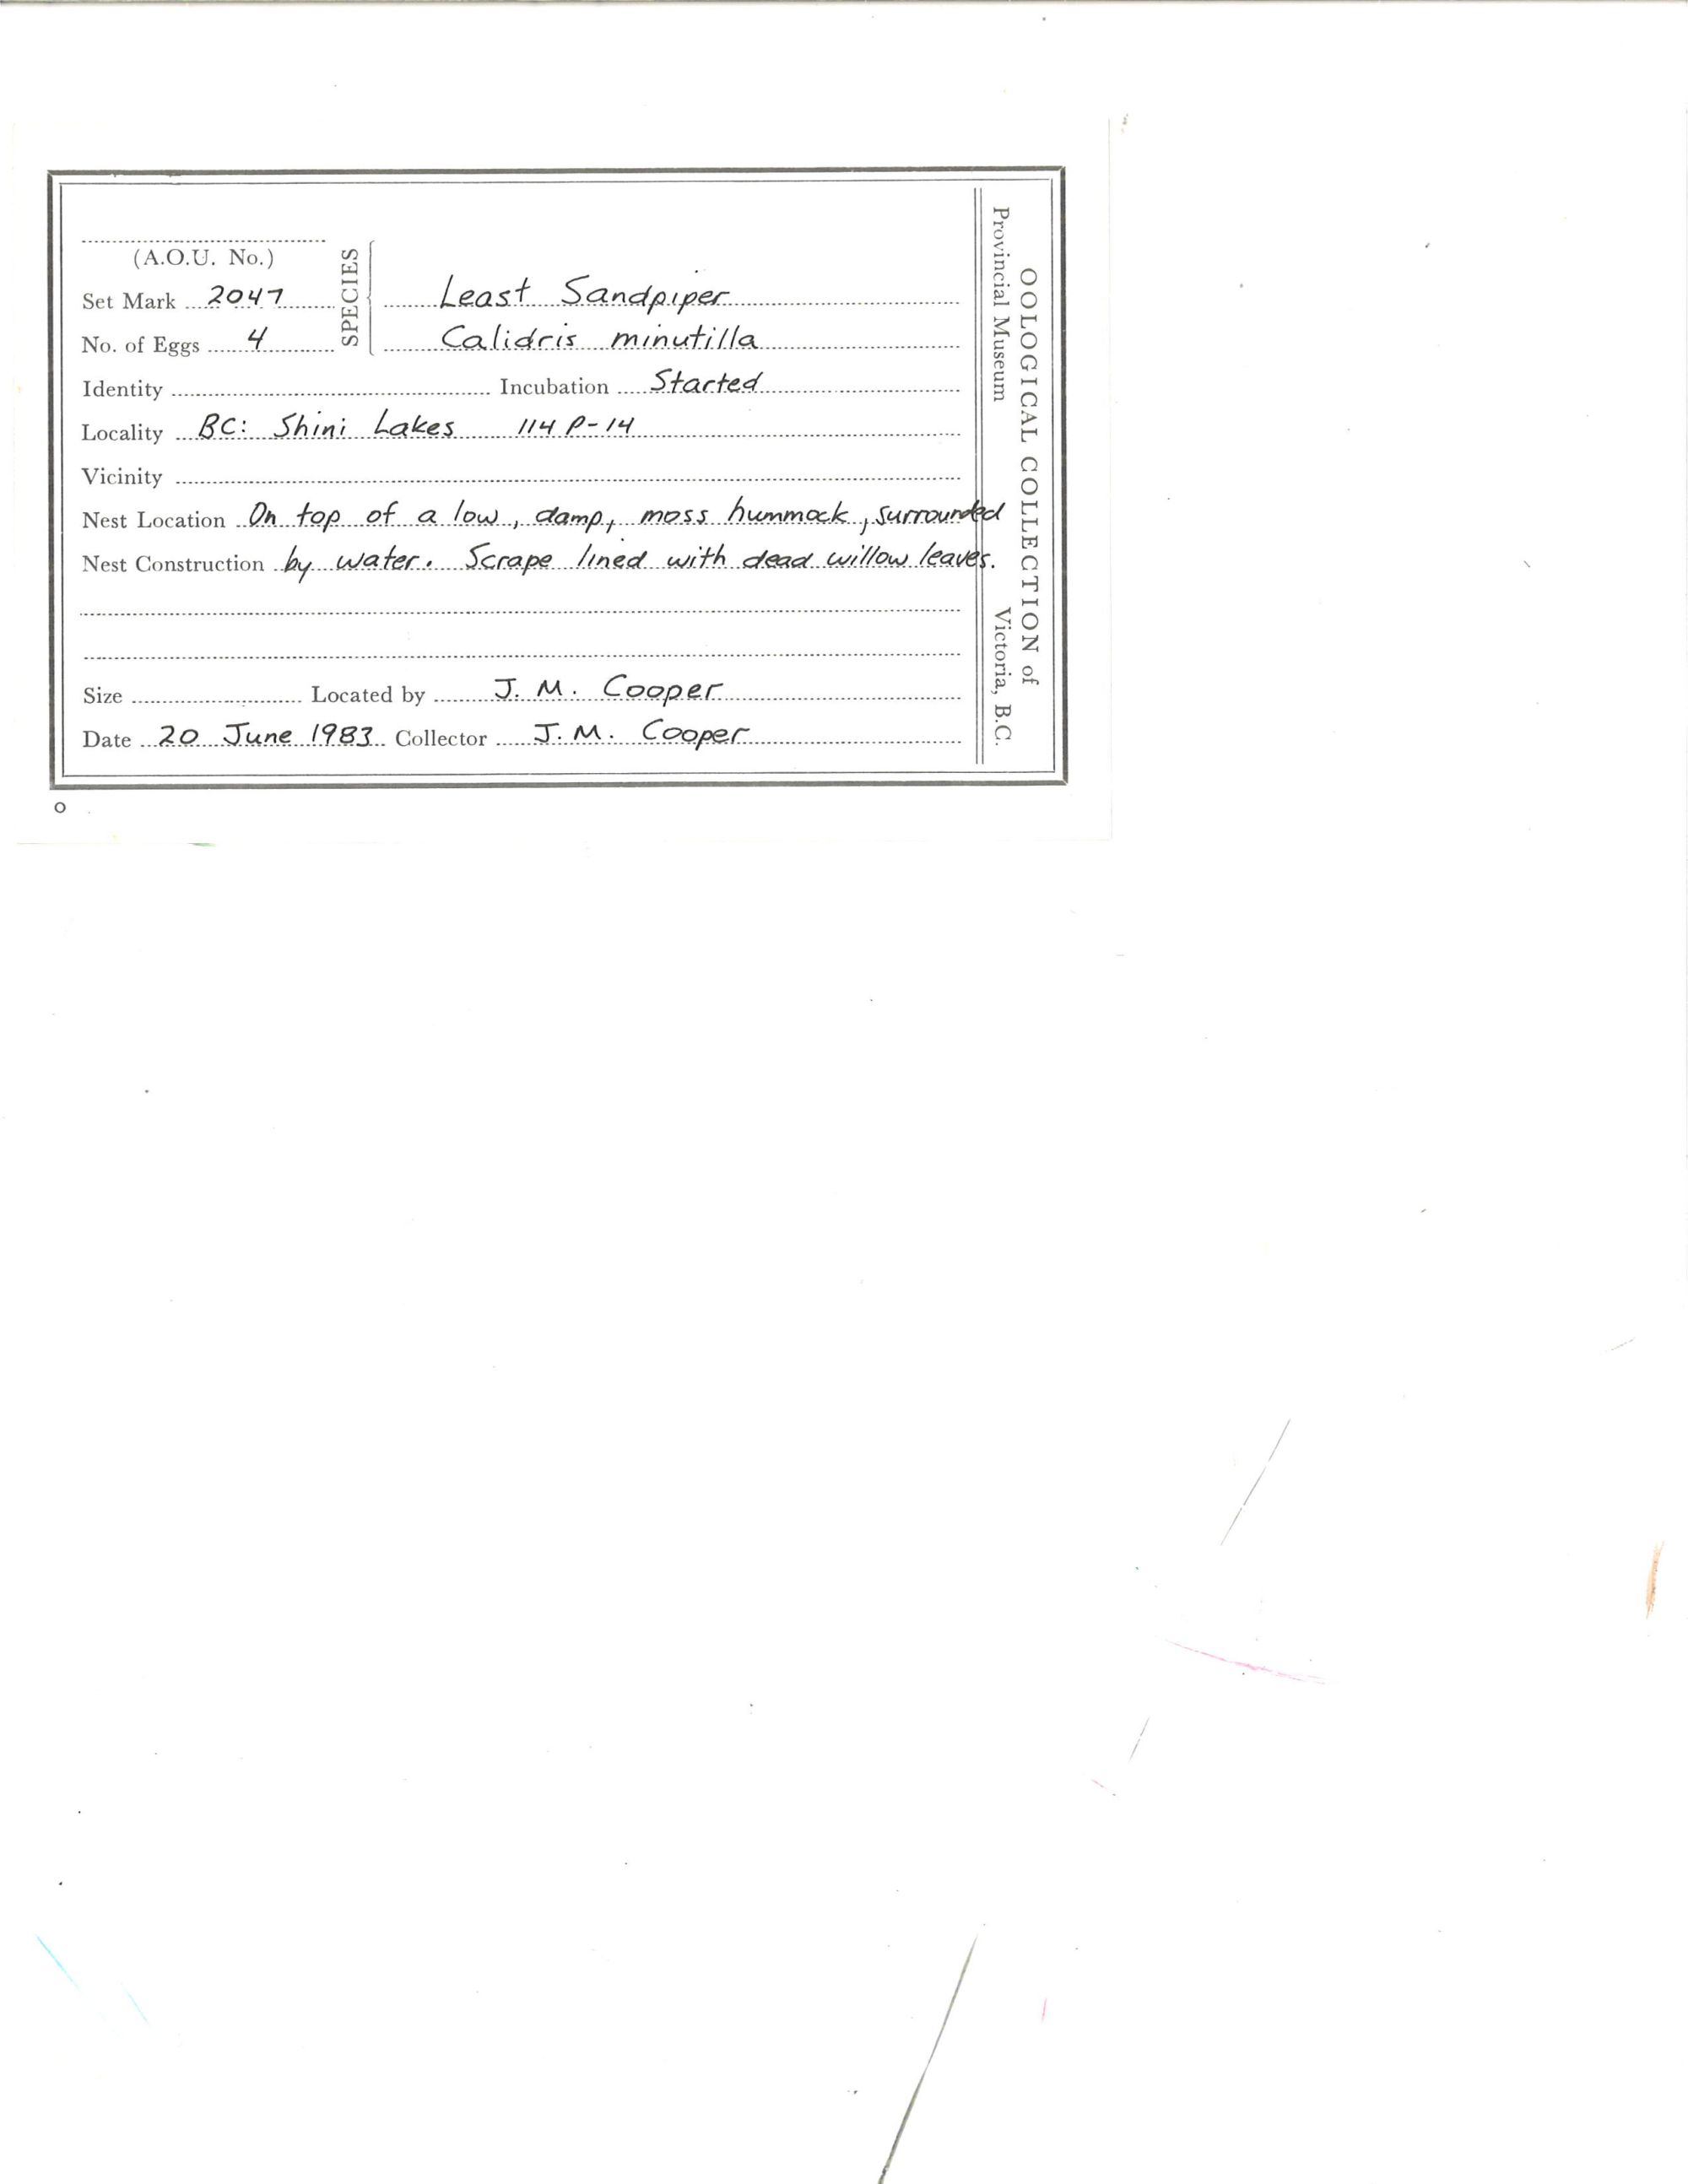 (A.O.U. No.)
SPECIES
Set Mark 2047 Least Sandpiper
No. of Eggs 4 Calidris minutilla
Identity Incubation Started
Locality BC: Shini Lakes 114 P-14
Vicinity
Nest Location On top of a low, damp, moss hummock, surrounded
Nest Construction by water. Scrape lined with dead willow leaves.
Size Located by J. M. Cooper
Date 20 June 1983 Collector J. M. Cooper
OOLOGICAL COLLECTION of
Provincial Museum Victoria, B.C.